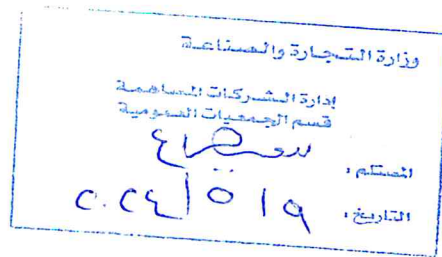 وزارة التجارة والصناعة
إدارة الشركات المساهمة
قسم الجمعيات العمومية
المستلم :
التاريخ : ٩ / ٥ / ٢٠٢٤